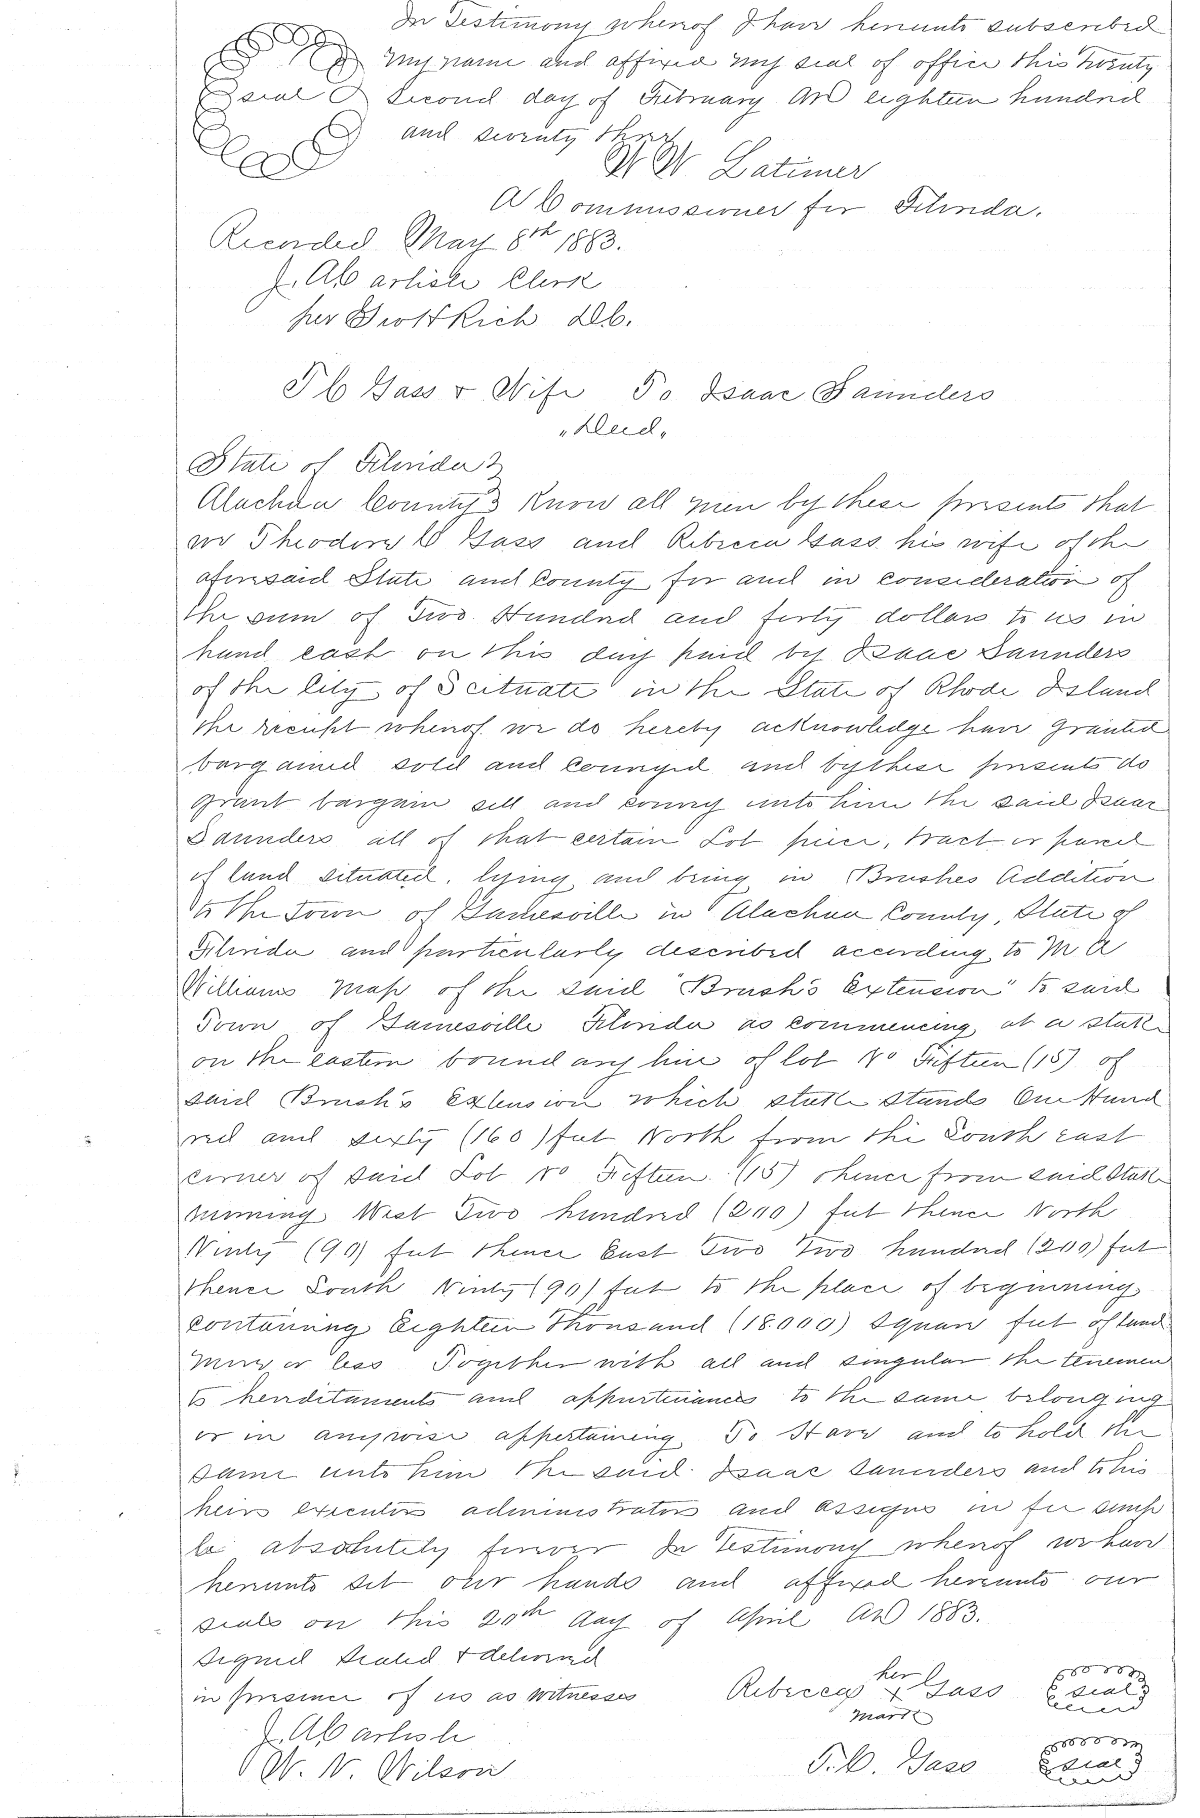 In Testimony whereof I have hereunto subscribed
my name and affixed my seal of office this Twenty
seal Second day of February AD eighteen hundred
and seventy three
W W Latimer
A Commissioner for Florida.
Recorded May 8th 1883.
J. A Carlisle Clerk
per Geo H Rich D.C.
T C Gass & Wife To Isaac Saunders
"Deed"
State of Florida }
Alachua County } Know all men by these presents that
we Theodore C Gass and Rebecca Gass his wife of the
aforesaid State and County for and in consideration of
the sum of Two Hundred and forty dollars to us in
hand cash on this day paid by Isaac Saunders
of the City of Scituate in the State of Rhode Island
the receipt whereof we do hereby acknowledge have granted
bargained sold and conveyed and by these presents do
grant bargain sell and convey unto him the said Isaac
Saunders all of that certain Lot piece, tract or parcel
of land situated, lying and being in Brushes Addition
to the Town of Gainesville in Alachua County, State of
Florida and particularly described according to M A
Williams Map of the said "Brush's Extension" to said
Town of Gainesville Florida as commencing at a stake
on the eastern boundary line of lot No Fifteen (15) of
said Brush's Extension which stake stands One Hund
red and sixty (160) feet North from the South east
corner of said Lot No Fifteen (15) thence from said Stake
running West Two hundred (200) feet thence North
Ninty (90) feet thence East Two Two hundred (200) feet
thence South Ninty (90) feet to the place of beginning
containing Eighteen Thousand (18.000) Square feet of land
more or less Together with all and singular the tenemen
ts hereditaments and appurtenances to the same belonging
or in anywise appertaining To Have and to hold the
same unto him the said Isaac Saunders and to his
heirs executors administrators and assigns in fee simp
le absolutely forever In Testimony whereof we have
hereunto set our hands and affixed hereunto our
seals on this 20th day of April AD 1883.
Signed Sealed & delivered
in presence of us as witnesses
J. A Carlisle
W. N. Wilson
her
Rebecca x Gass seal
mark
T. C. Gass seal